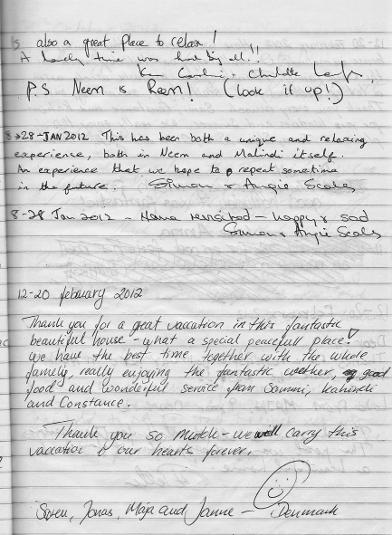 is also a great place to relax!
A lovely time was had by all!!
P.S Neem is Room! (look it up!)
8→28-JAN 2012 This has been both a unique and relaxing
experience, both in Neem and Malindi itself.
An experience that we hope to repeat sometime
in the future. Simon & Angie Scales
8-28 Jan 2012 - Nama revisited - happy & sad
Simon & Angie Scales
12-20 february 2012
Thank you for a great vacation in this fantastic
beautiful house - what a special peacefull place!
We have the best time together with the whole
family, really enjoying the fantastic weather, good
food and wonderful service from Sammi, Kahindi
and Constance.
Thank you so mutch - we will carry this
vacation in our hearts forever.
Søren, Jonas, Maja and Janne - Denmark